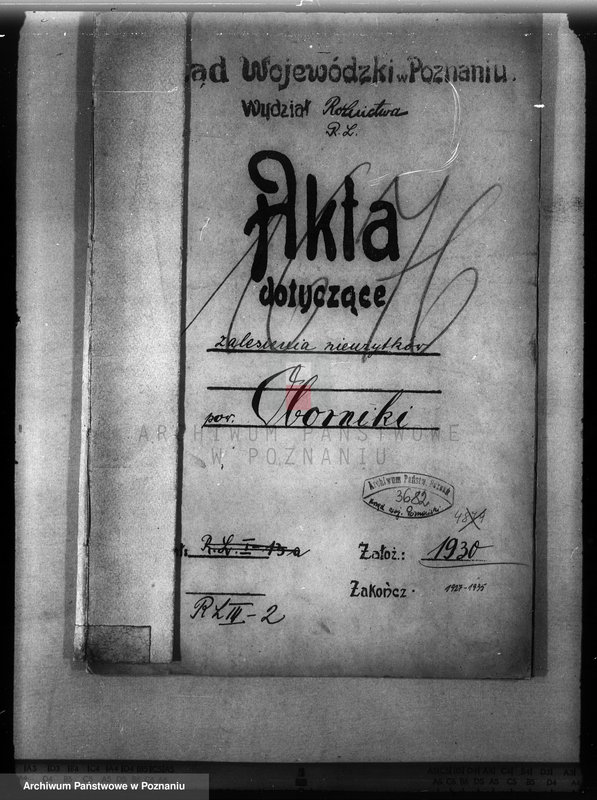 ąd Wojewódzki w Poznaniu.
Wydział Rolnictwa
R. L.
Akta
dotyczące
zalesienia nieużytków
pow. Oborniki
ARCHIWUM PAŃSTWOWE
W POZNANIU
Archiwum Państw. Poznań
3682
4871
R. L. I-13a
Założ.: 1930
Zakończ. 1927-1935
RL IV - 2
Archiwum Państwowe w Poznaniu